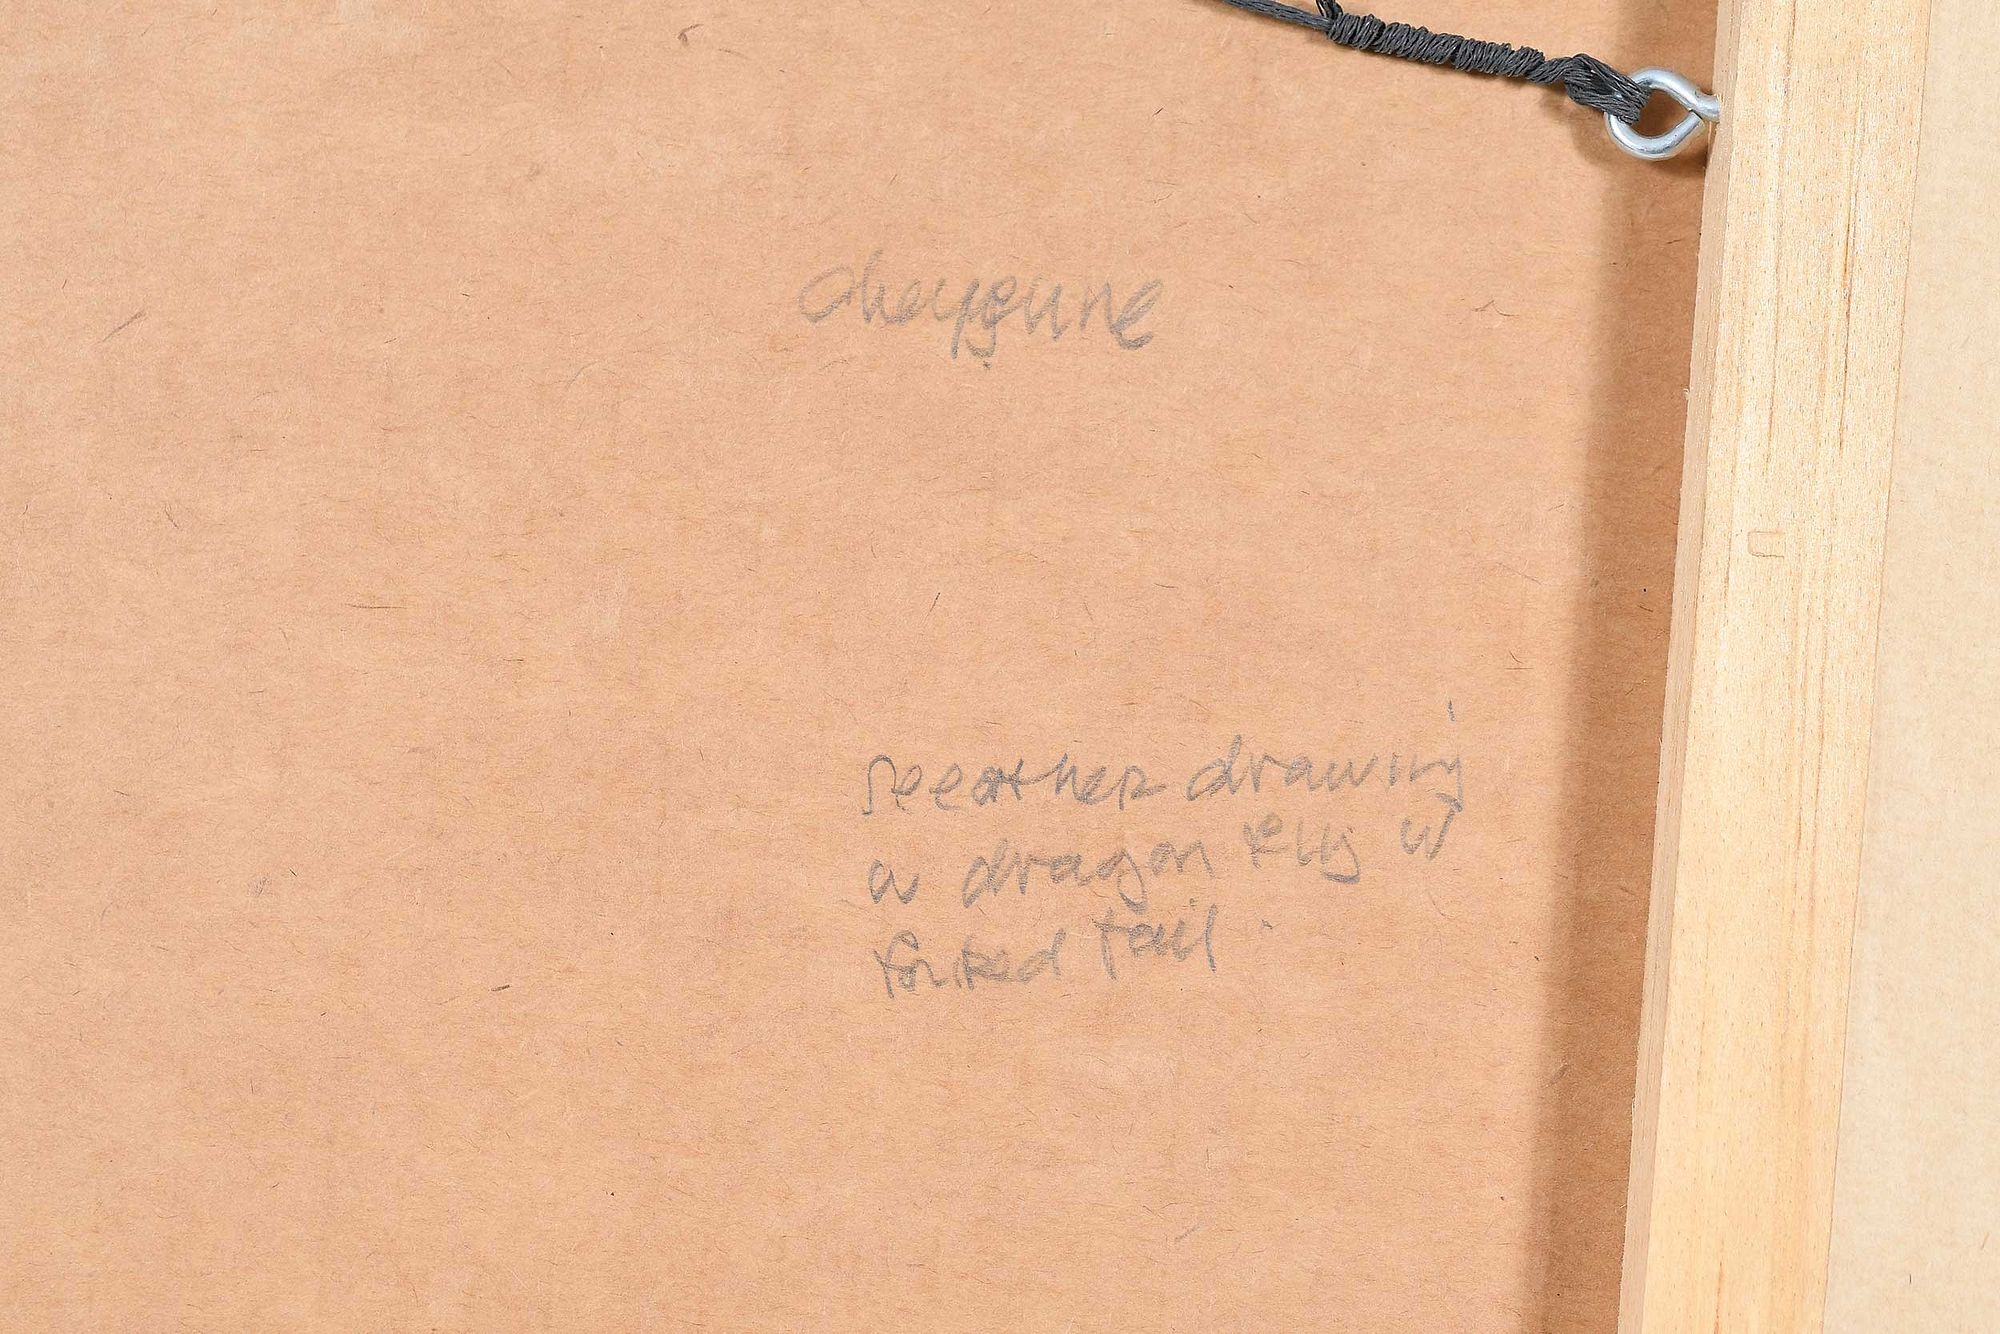 cheyenne
see other drawing
a dragon fly w/
forked tail.